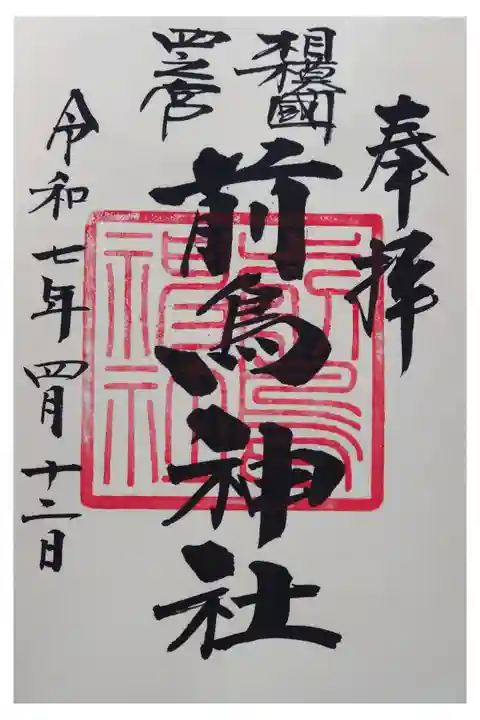 奉拝
相模國
四之宮
前鳥神社
令和七年四月十二日